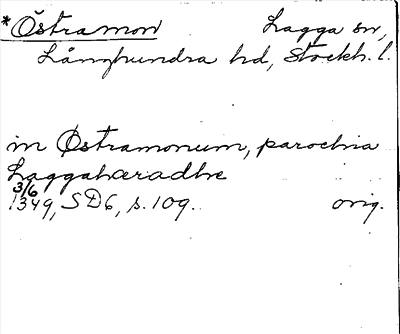 *Östramon Lagga sn,
Långhundra hd, Stockh. l.
in Østramonum, parochia
Laggahæradhe
3/6
1349, SD6, s. 109. orig.